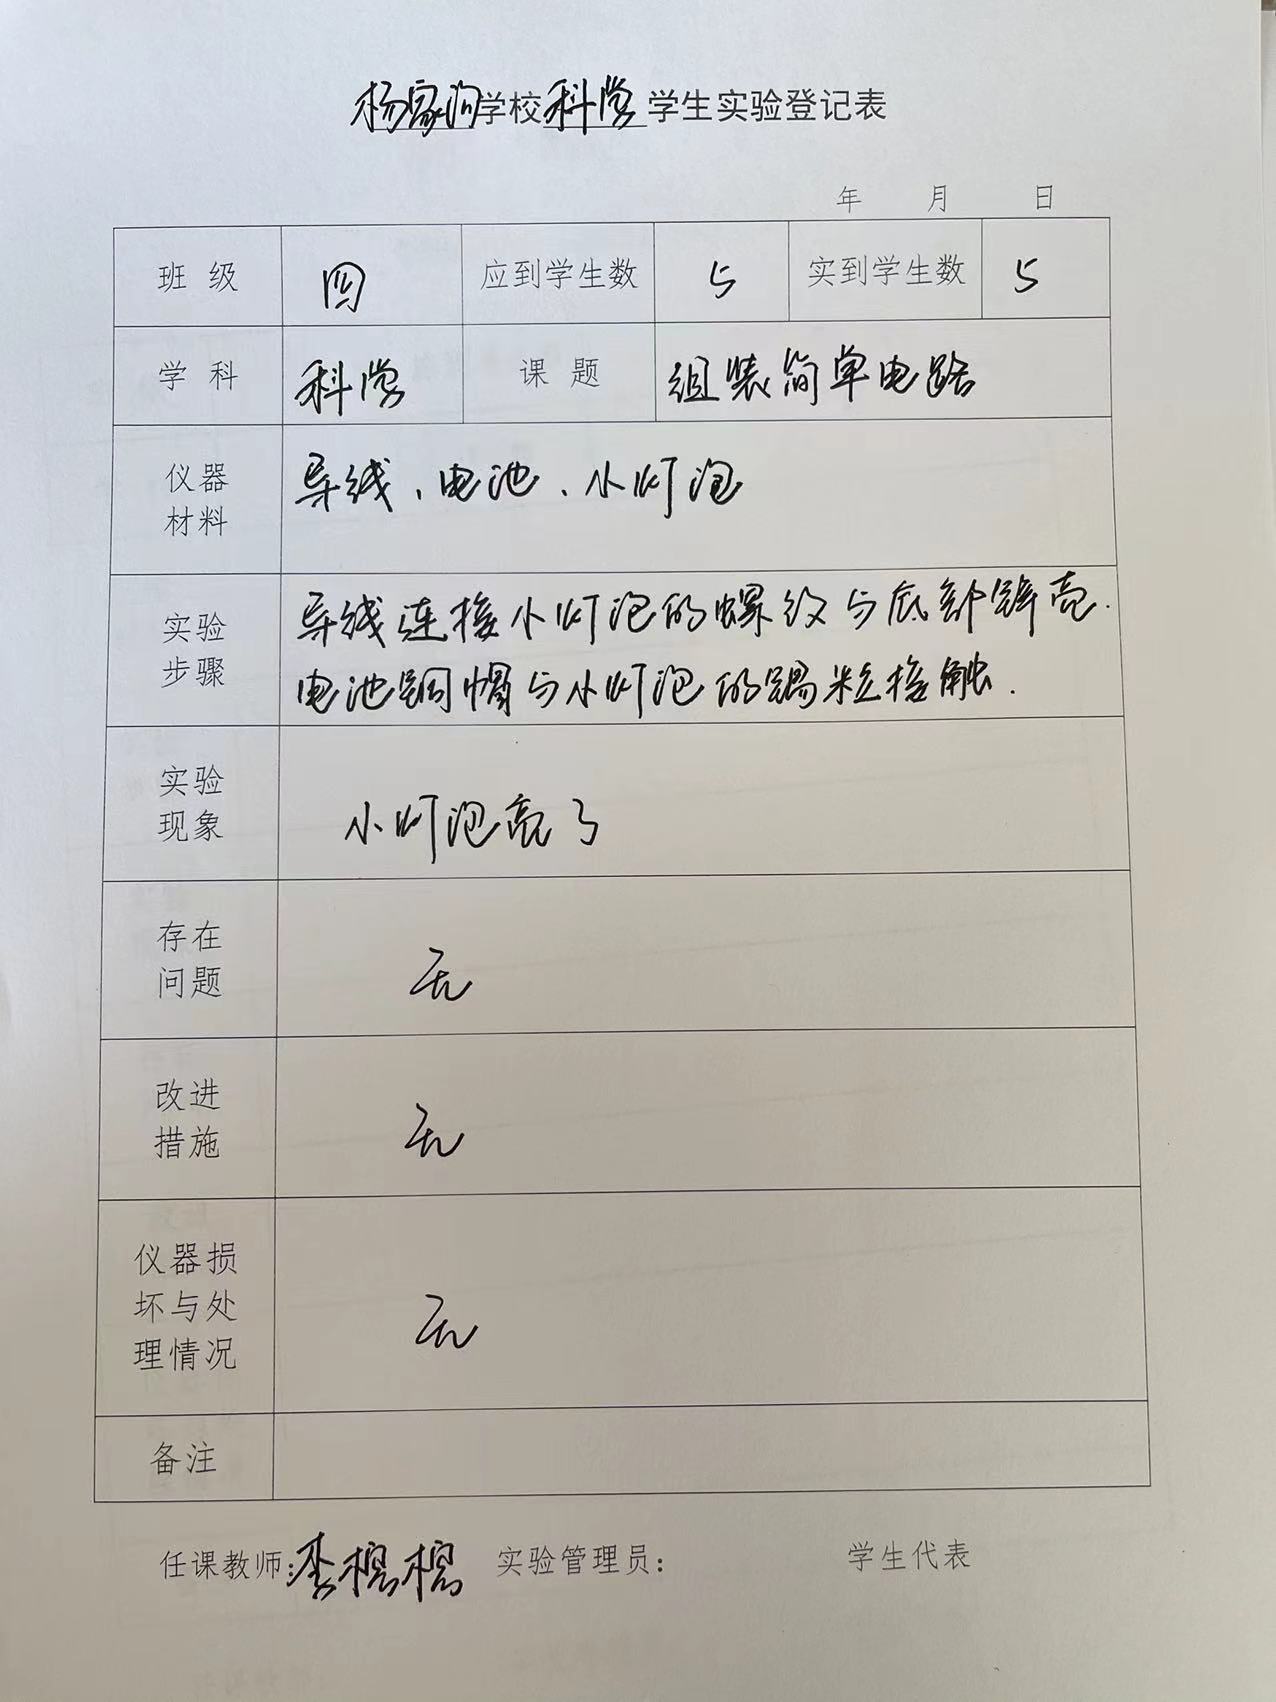 杨家沟学校科学学生实验登记表
年 月 日
班 级 四 应到学生数 5 实到学生数 5
学 科 科学 课 题 组装简单电路
仪器
材料
导线、电池、小灯泡
实验
步骤
导线连接小灯泡的螺纹与底部锌壳.
电池铜帽与小灯泡的锡粒接触.
实验
现象
小灯泡亮了
存在
问题
无
改进
措施
无
仪器损
坏与处
理情况
无
备注
任课教师: 李 实验管理员: 学生代表